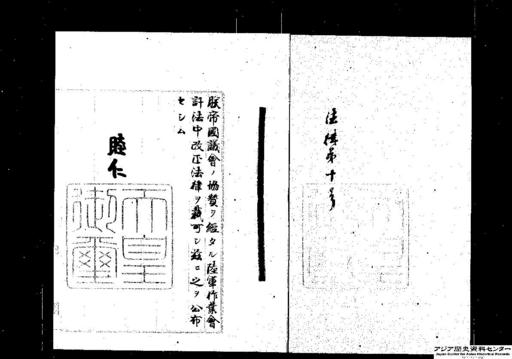 法律第十号
朕帝國議會ノ協賛ヲ經タル陸軍作業會
計法中改正法律ヲ裁可シ茲ニ之ヲ公布
セシム
睦仁
天皇
御璽
アジア歴史資料センター
Japan Center for Asian Historical Records